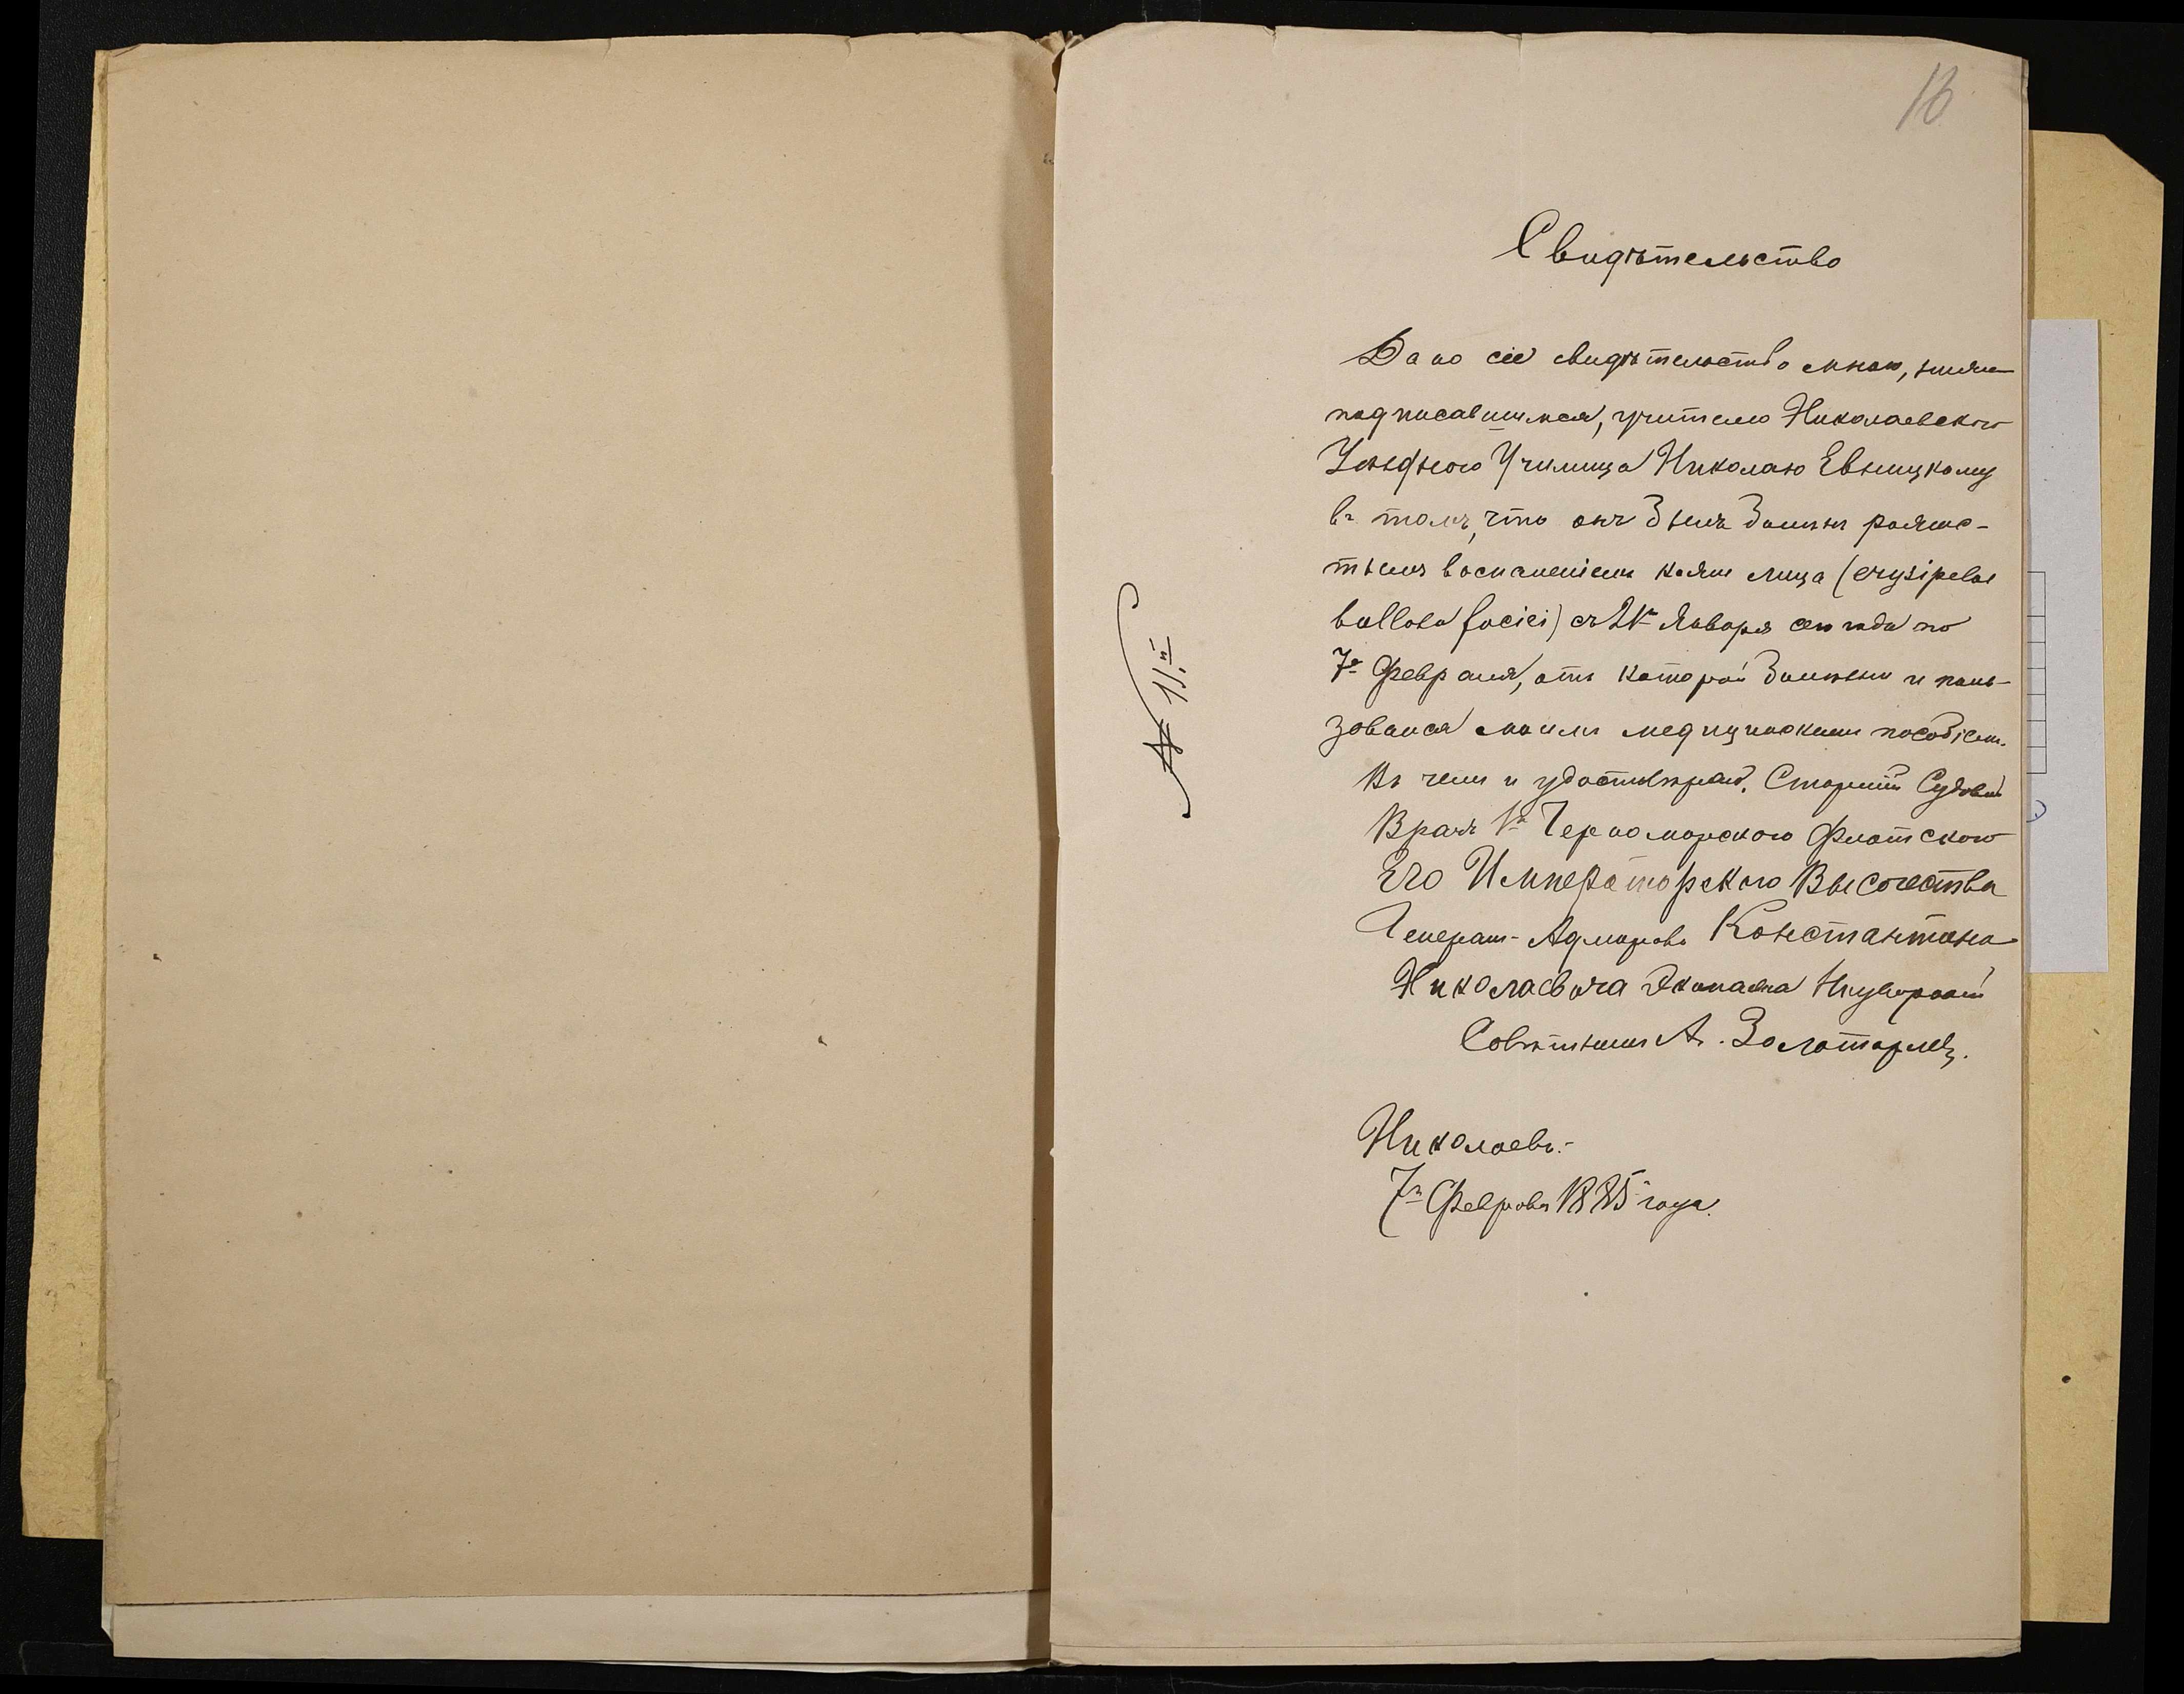 16
Свидѣтельство
Дано сіе свидѣтельство мною, ниже
подписавшимся, учителю Николаевскаго
Уѣзднаго Училища Николаю
въ томъ, что онъ былъ боленъ рожис-
тымъ воспаленіемъ кожи лица (erysipelas
bullosa faciei) съ Января сего года по
7е Февраля, отъ которой болѣзни и поль-
зовался моимъ медицинскимъ пособіемъ.
Въ чемъ и удостовѣряю. Старшій Судовой
Врачъ 1го Черноморскаго Флотскаго
Его Императорскаго Высочества
Генералъ-Адмирала Константина
Николаевича Экипажа Надворный
Совѣтникъ А. Золотаревъ.
Николаевъ.-
7го Февраля 1885 года.
№ 11.й